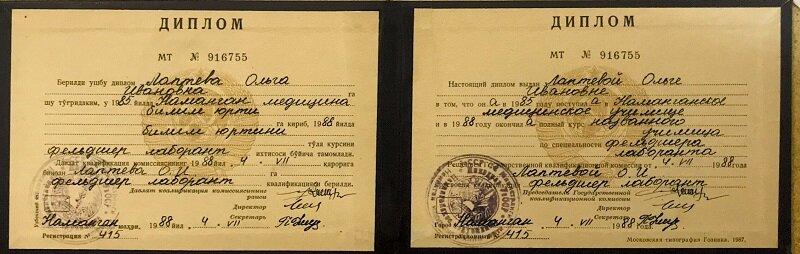 ДИПЛОМ
МТ № 916755
Берилди ушбу диплом Лаптева Ольга
Ивановна га
шу тўғридаким, у 1985 йилда Наманган медицина
билим юрти
га кириб, 1988 йилда
билим юртини
тўла курсини
фельдшер лаборант ихтисоси бўйича тамомлади.
Давлат квалификация комиссиясининг 1988 йил 4. VII қарорига
биноан Лаптева О. И.
фельдшер лаборант квалификацияси берилди.
Давлат квалификация комиссиясининг
раиси
Директор
Секретарь
Наманган шаҳри, 1988 йил 4. VII
Регистрация № 415
ДИПЛОМ
МТ № 916755
Настоящий диплом выдан Лаптевой Ольге
Ивановне
в том, что она в 1985 поступила в Наманганское
медицинское училище
и в 1988 окончила полный курс названного
училища
по специальности фельдшера
лаборанта
Решением Государственной квалификационной комиссии от 4. VII 1988
Лаптевой О. И.
фельдшер лаборант
Председатель Государственной
квалификационной комиссии
Директор
Секретарь
Город Наманган 4. VII 1988
Регистрационный № 415
Московская типография Гознака. 1987.